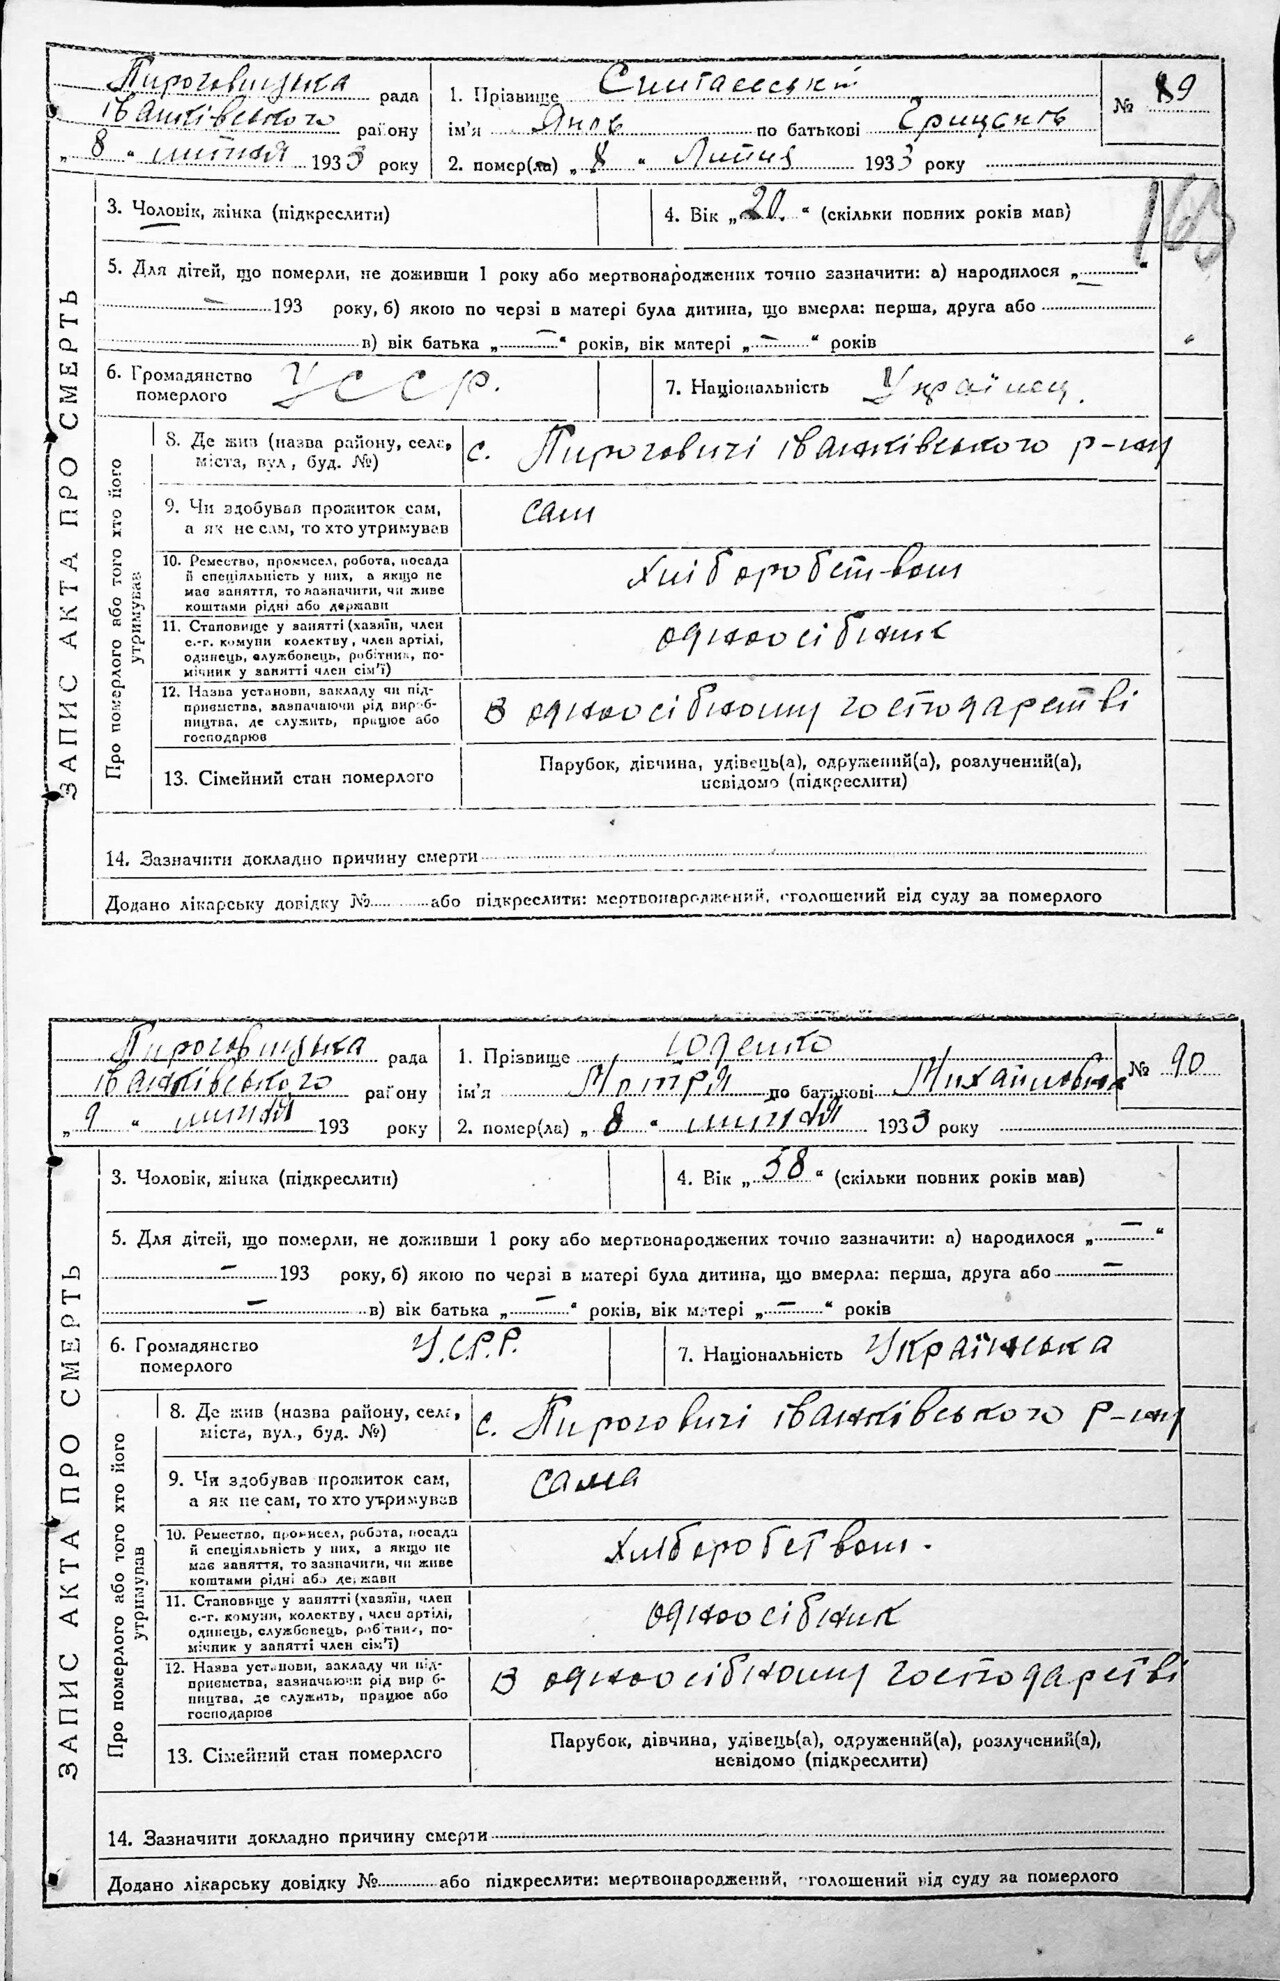 Пироговицька рада
Іванківського району
„ 8 “ липня 1933 року
1. Прізвище
ім'я Яков по батькові
2. помер(ла) „ 8 “ Липня 1933 року
№ 89
163
ЗАПИС АКТА ПРО СМЕРТЬ
3. Чоловік, жінка (підкреслити)
4. Вік „ 20. “ (скільки повних років мав)
5. Для дітей, що померли, не доживши 1 року або мертвонароджених точно зазначити: а) народилося „ — “
— 193 року, б) якою по черзі в матері була дитина, що вмерла: перша, друга або
в) вік батька „ — “ років, вік матері „ — “ років
6. Громадянство
померлого
УССР.
7. Національність Українец.
Про померлого або того хто його
утримував
8. Де жив (назва району, села,
міста, вул., буд. №)
с. Пироговичі Іванківського р-ну
9. Чи здобував прожиток сам,
а як не сам, то хто утримував
сам
10. Ремество, промисел, робота, посада
й спеціяльність у них, а якщо не
має заняття, то зазначити, чи живе
коштами рідні або держави
хліборобством
11. Становище у занятті (хазяїн, член
с.-г. комуни колективу, член артілі,
одинець, службовець, робітник, по-
мічник у занятті член сім'ї)
одноосібник
12. Назва установи, закладу чи під-
приємства, зазначаючи рід вироб-
ництва, де служить, працює або
господарює
в одноосібному господарстві
13. Сімейний стан померлого
Парубок, дівчина, удівець(а), одружений(а), розлучений(а),
невідомо (підкреслити)
14. Зазначити докладно причину смерти
Додано лікарську довідку № або підкреслити: мертвонароджений, оголошений від суду за померлого
Пироговицька рада
Іванківського району
„ 9 “ липня 193 року
1. Прізвище Юденко
ім'я Мотря по батькові Михайловна
2. помер(ла) „ 8 “ липня 1933 року
№ 90
ЗАПИС АКТА ПРО СМЕРТЬ
3. Чоловік, жінка (підкреслити)
4. Вік „ 58 “ (скільки повних років мав)
5. Для дітей, що померли, не доживши 1 року або мертвонароджених точно зазначити: а) народилося „ — “
— 193 року, б) якою по черзі в матері була дитина, що вмерла: перша, друга або —
— в) вік батька „ — “ років, вік матері „ — “ років
6. Громадянство
померлого
У.С.Р.Р.
7. Національність Українська
Про померлого або того хто його
утримував
8. Де жив (назва району, села,
міста, вул., буд. №)
с. Пироговичі Іванківського р-ну
9. Чи здобував прожиток сам,
а як не сам, то хто утримував
сама
10. Ремество, промисел, робота, посада
й спеціяльність у них, а якщо не
має заняття, то зазначити, чи живе
коштами рідні або держави
хліборобством.
11. Становище у занятті (хазяїн, член
с.-г. комуни, колективу, член артілі,
одинець, службовець, робітник, по-
мічник у занятті член сім'ї)
одноосібник
12. Назва установи, закладу чи під-
приємства, зазначаючи рід вироб-
ництва, де служить, працює або
господарює
в одноосібному господарстві
13. Сімейний стан померлого
Парубок, дівчина, удівець(а), одружений(а), розлучений(а),
невідомо (підкреслити)
14. Зазначити докладно причину смерти
Додано лікарську довідку № або підкреслити: мертвонароджений, оголошений від суду за померлого